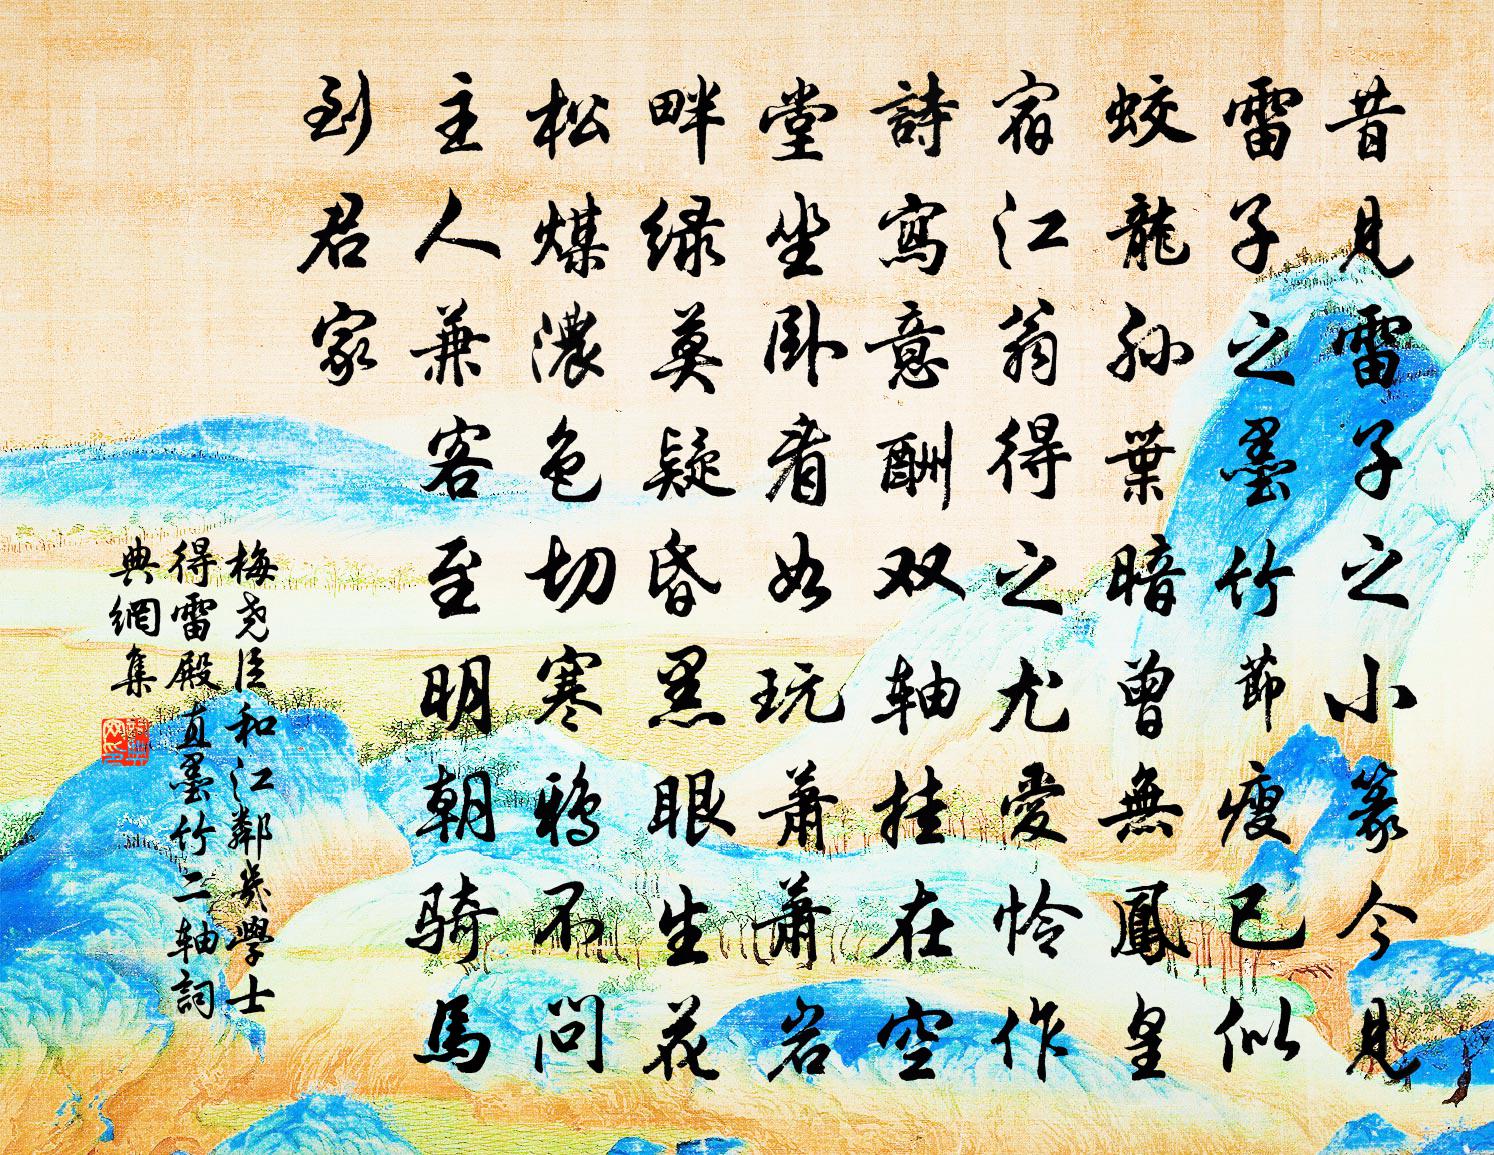 昔見雷子之小篆今見
雷子之墨竹節瘦已似
蛟龍孙葉暗曾無鳳皇
宿江翁得之尤愛怜作
詩寫意酬双轴挂在空
堂坐卧看如玩萧萧岩
畔緑莫疑昏黑眼生花
松煤濃色切寒鴉不问
主人兼客至明朝骑馬
到君家
梅尧臣和江鄰幾學士
得雷殿直墨竹二轴詞
典網集